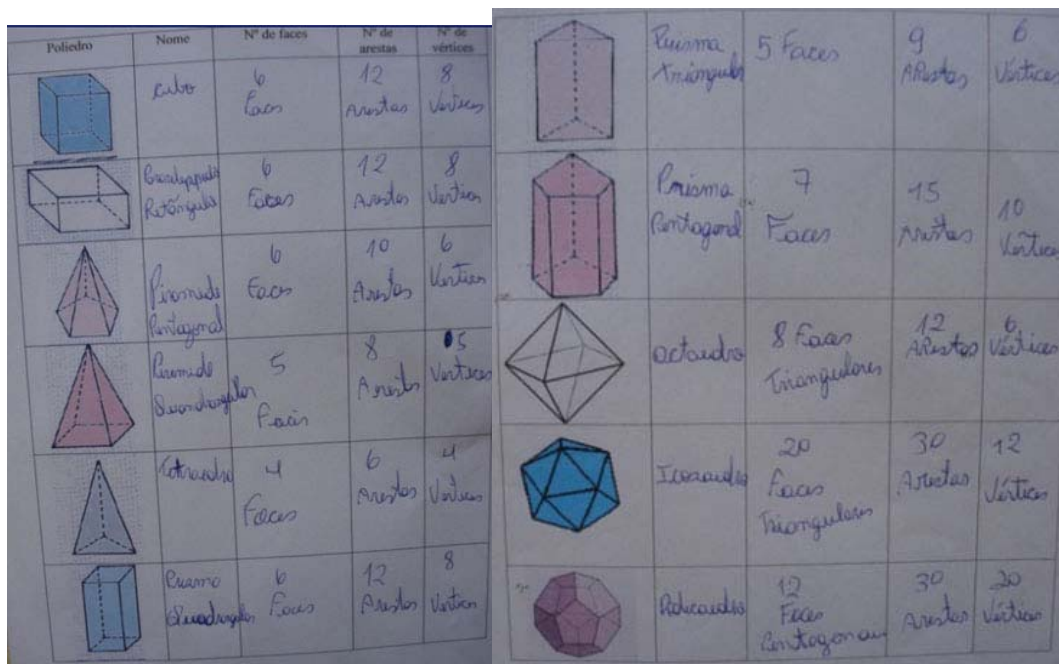 Poliedro Nome Nº de faces Nº de arestas Nº de vértices
cubo 6 Faces 12 Arestas 8 Vertices
Retângulo 6 Faces 12 Arestas 8 Vertices
Piramide Pentagonal 6 Faces 10 Arestas 6 Vertices
Piramide Quandrangular 5 Faces 8 Arestas 5 Vertices
tetraedro 4 Faces 6 Arestas 4 Vertices
Prisma Quadrangular 6 Faces 12 Arestas 8 Vertices
Prisma triângular 5 Faces 9 ARestas 6 Vértices
Prisma Pentagonal 7 Faces 15 Arestas 10 Vértices
octaedro 8 Faces Triangulares 12 ARestas 6 Vértices
Icosaedro 20 Faces Triangulares 30 Arestas 12 Vértices
12 Faces Pentagonais 30 Arestas 20 Vértices